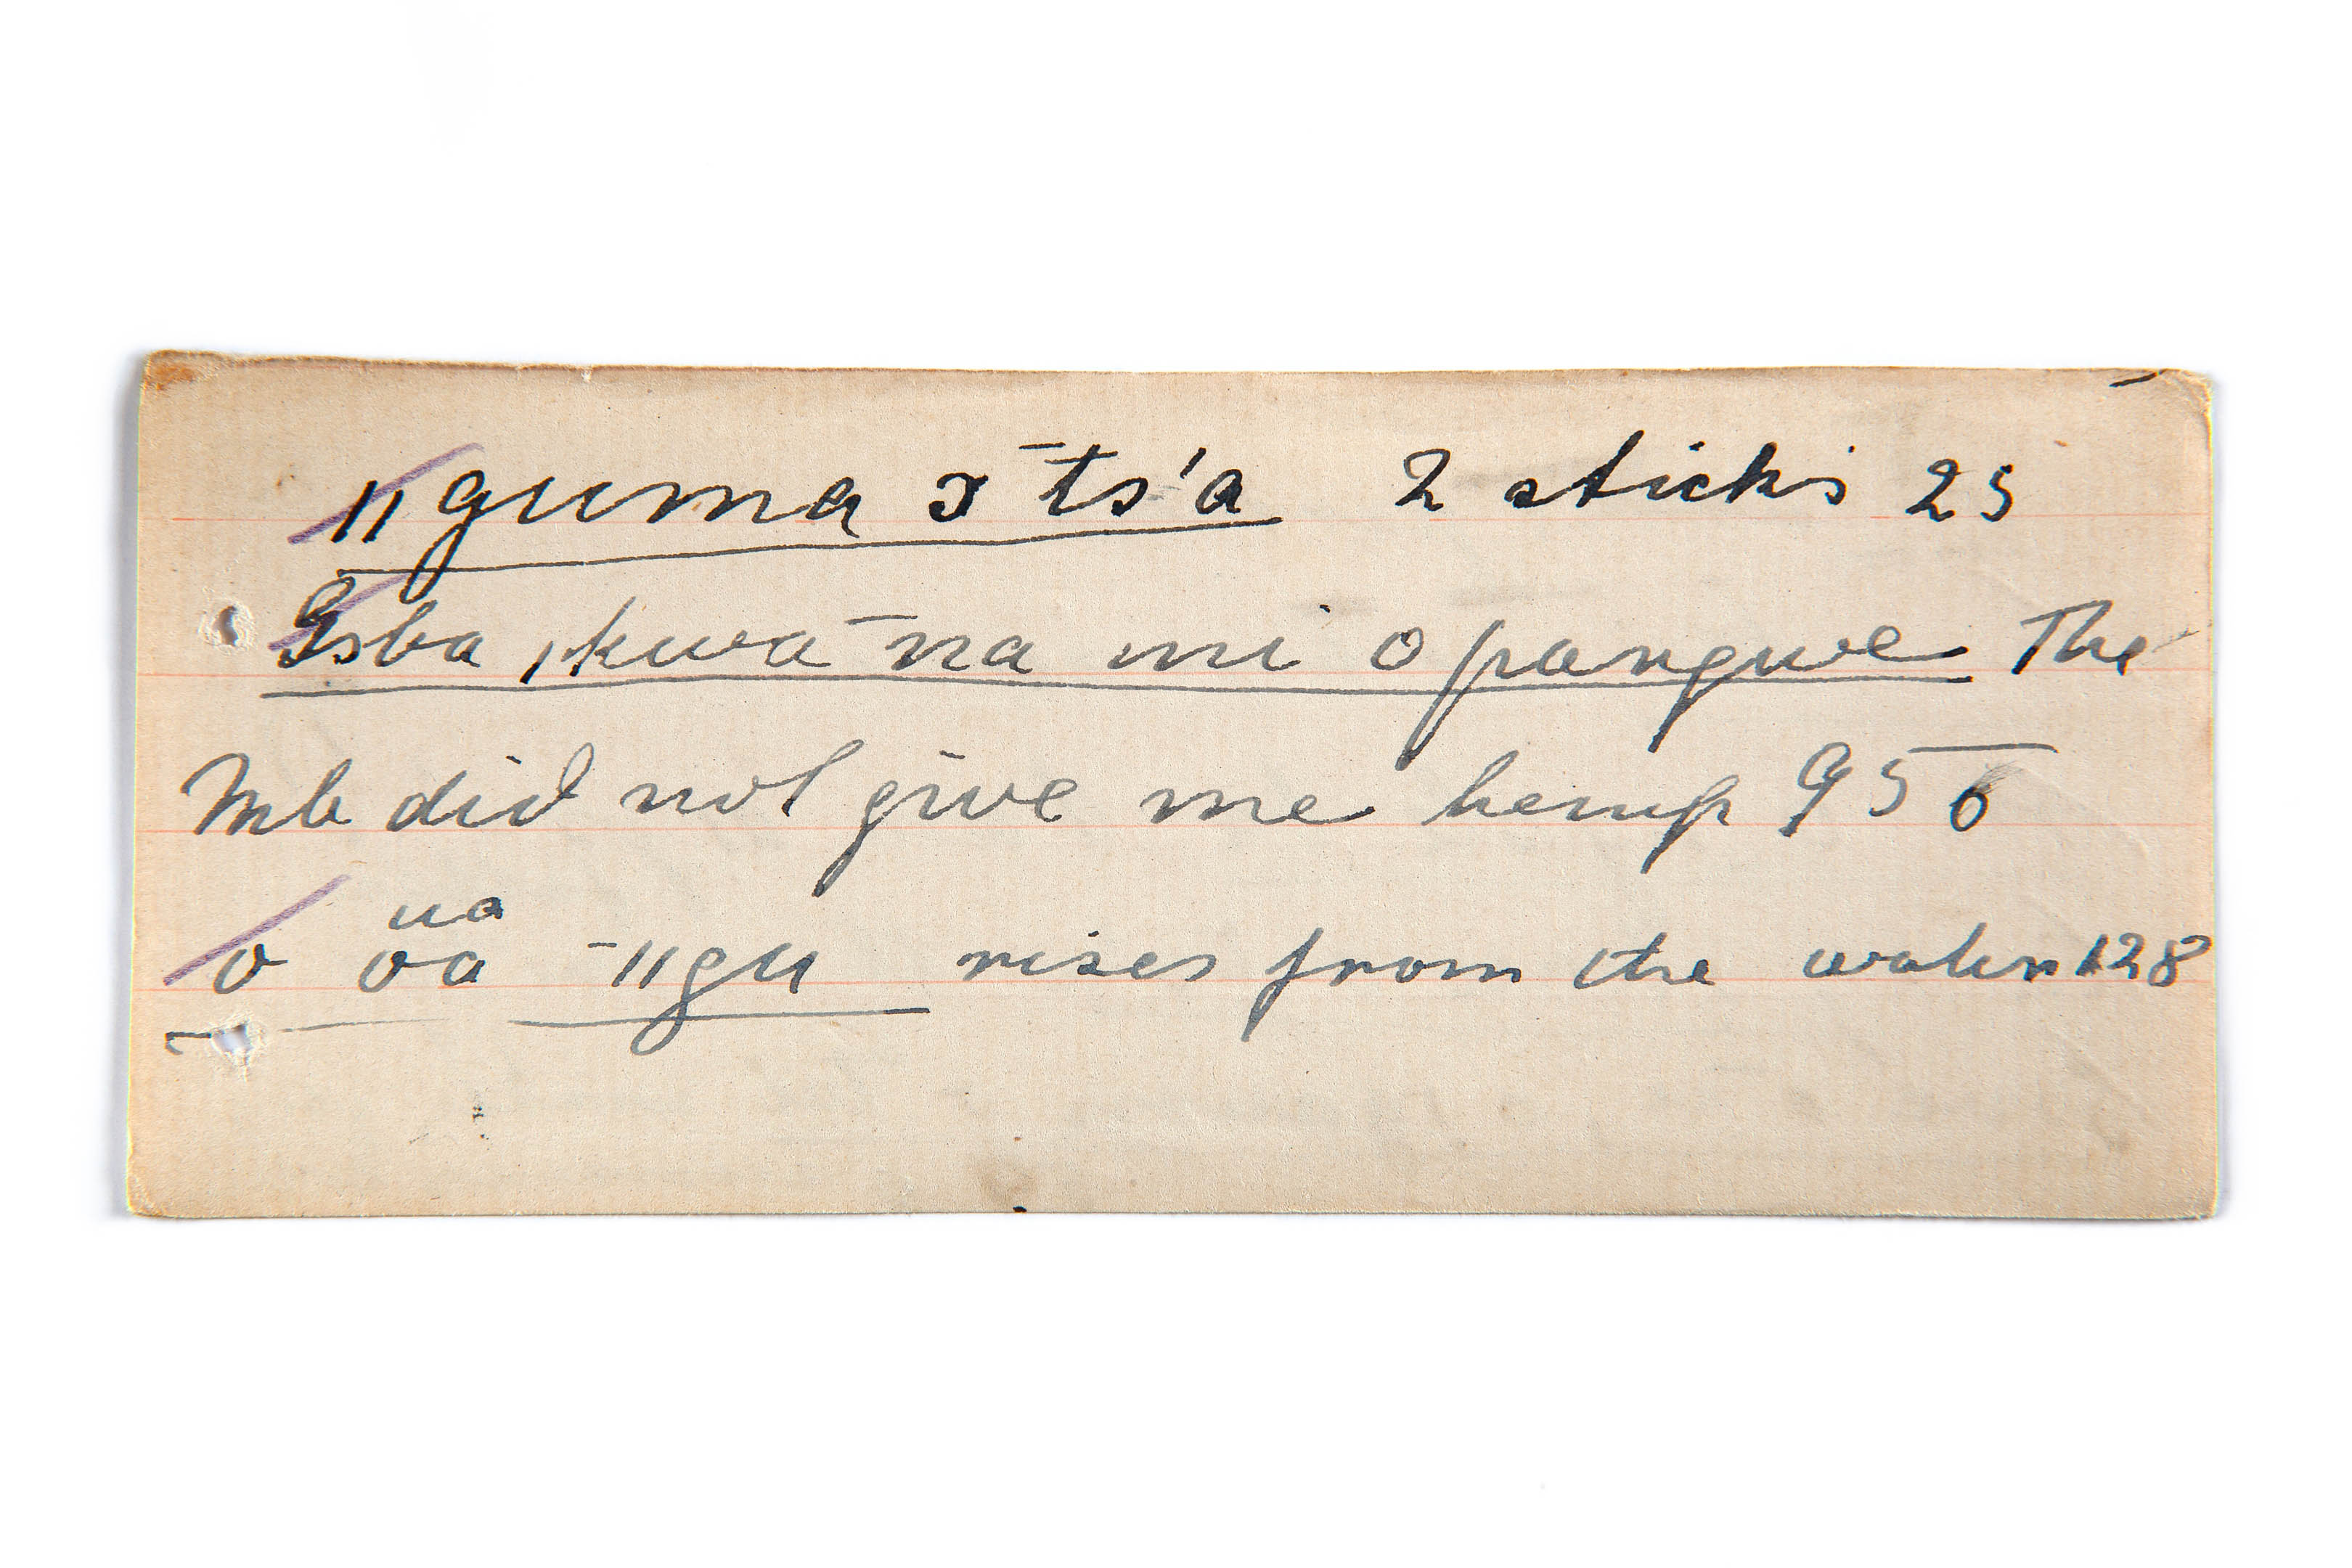 ǁguma ɔ ̄ts'a 2 sticks 25
ǀkwa ̄na mi opangwe The
Mb did not give me hemp 956
o oa ̄ǁgu rises from the water 128
ua